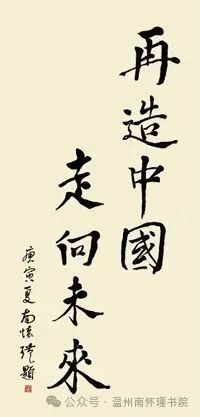 再造中國
走向未來
庚寅夏南懷瑾題
公众号·温州南怀瑾书院